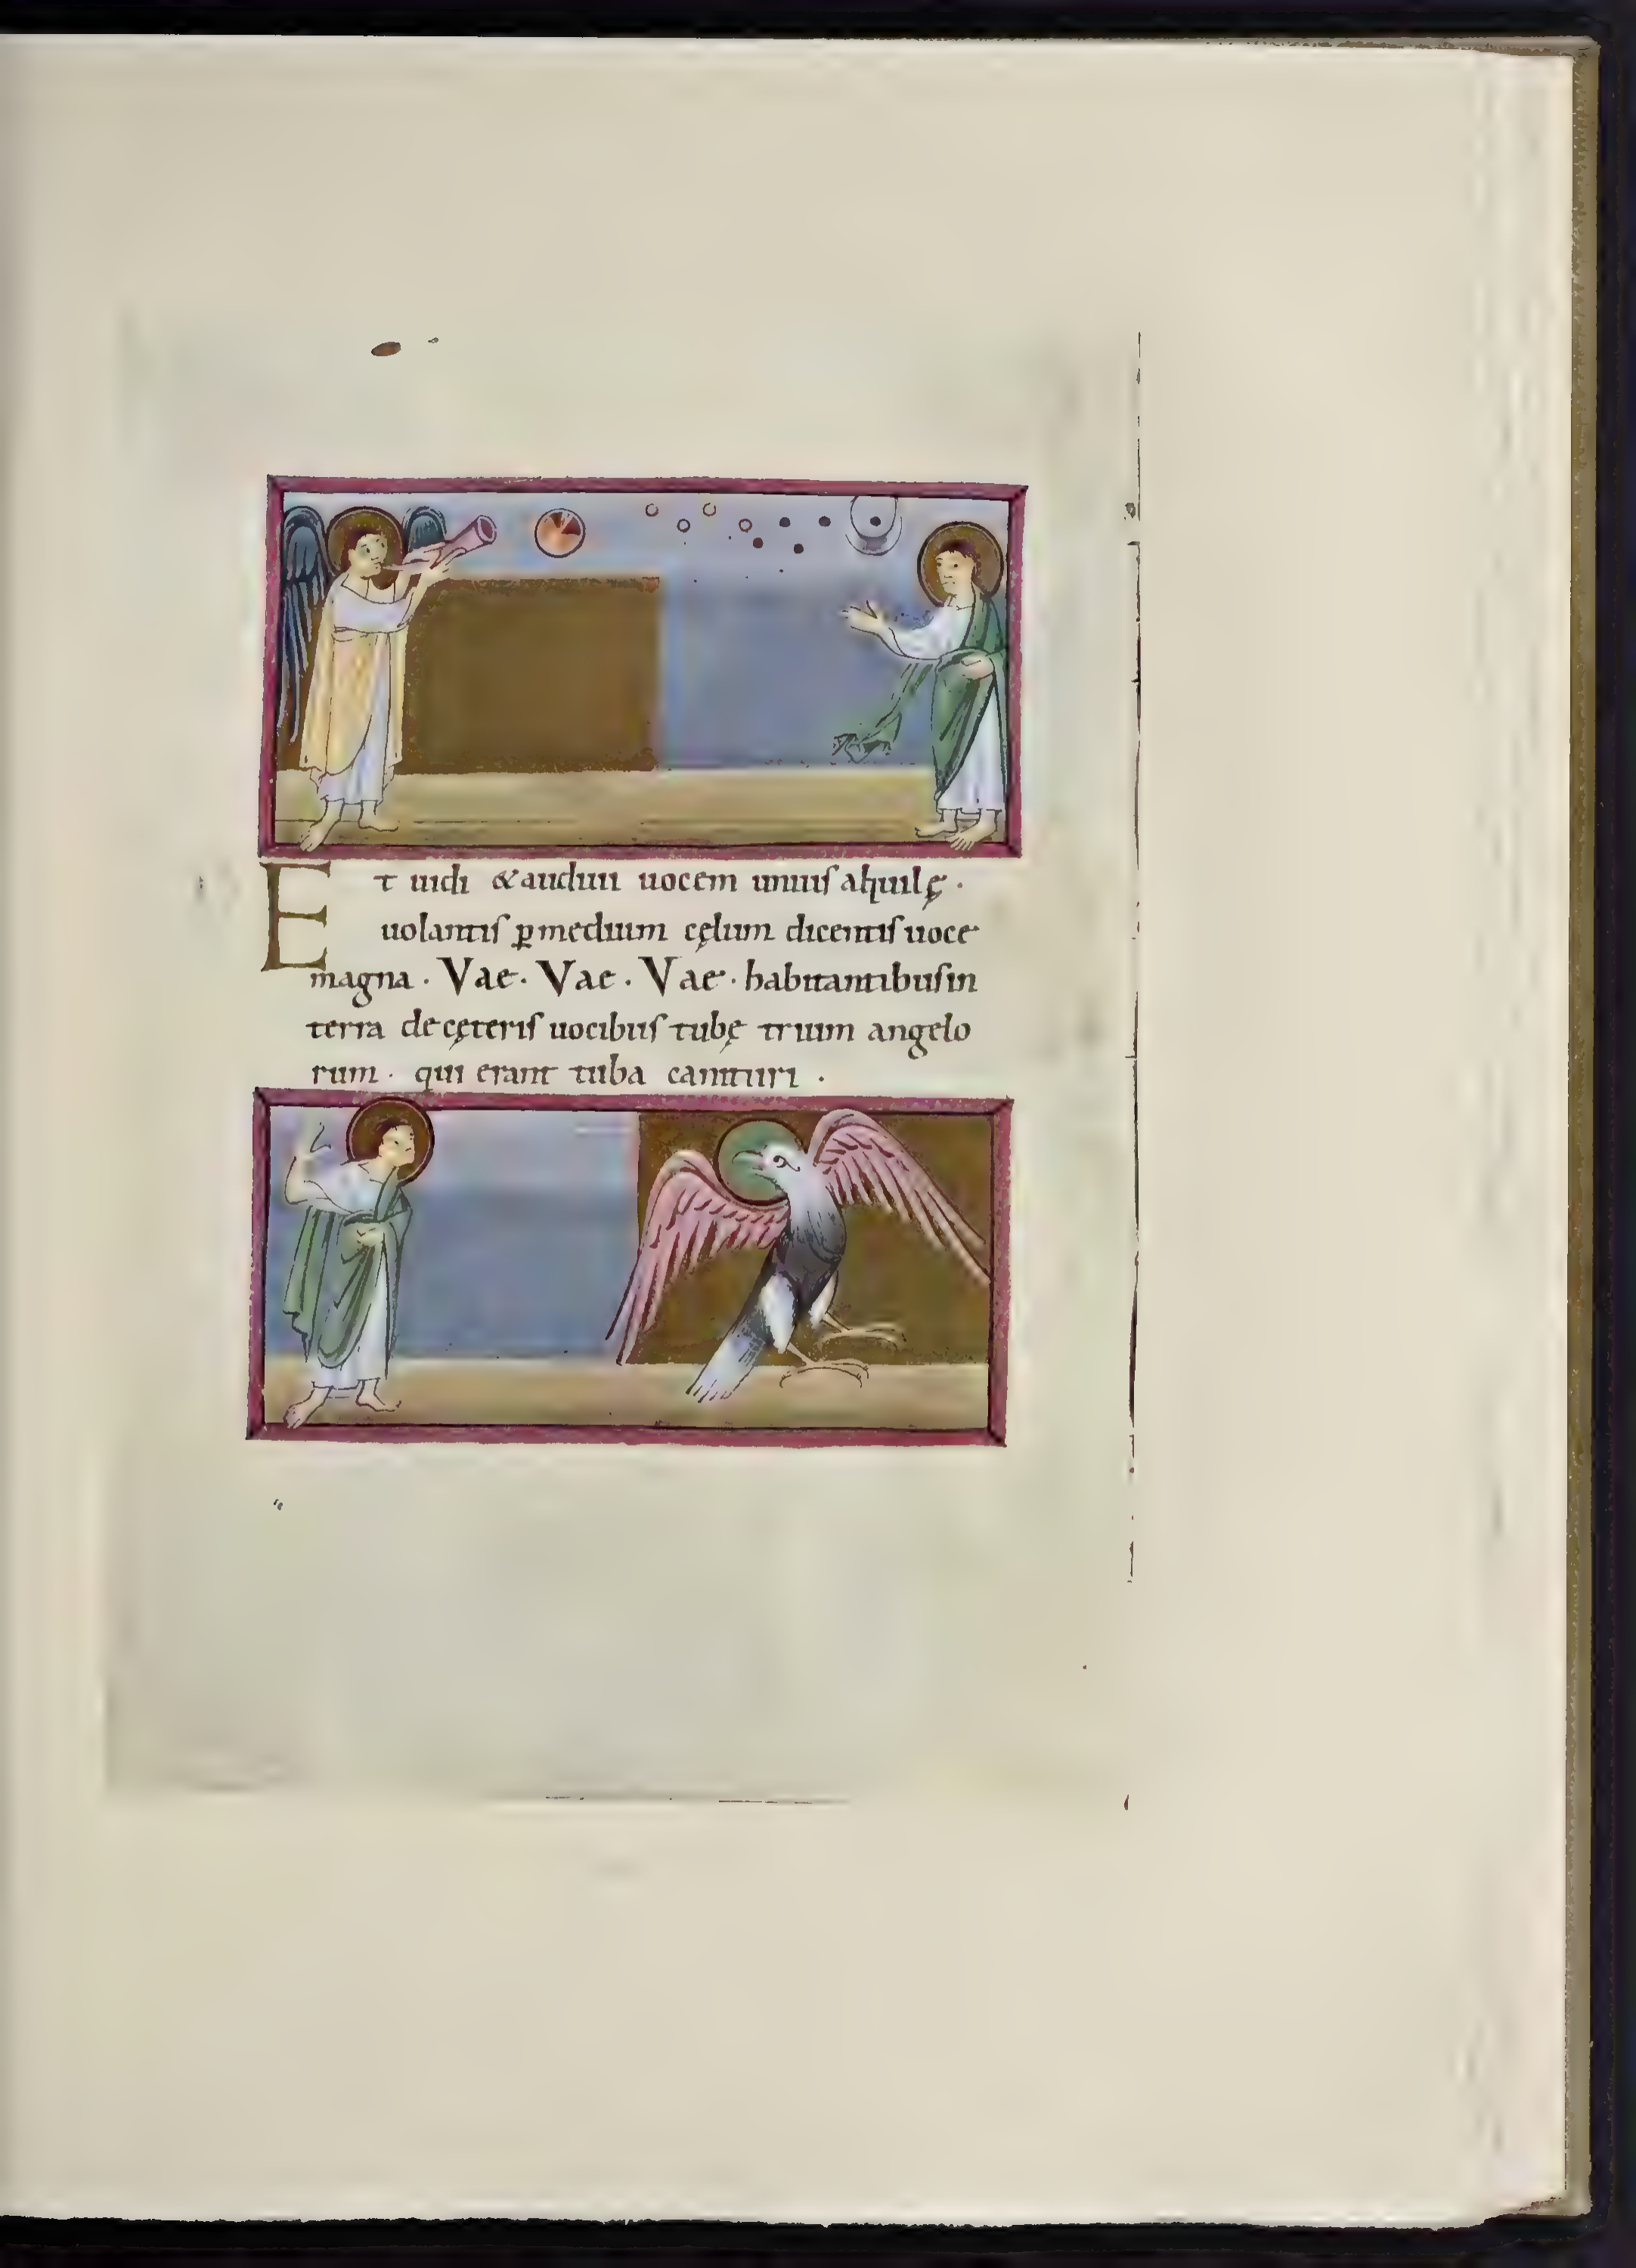 Et uidi & audiui uocem unius aquilę ·
uolantis ꝑ medium cęlum dicentis uoce
magna · Vae · Vae · Vae · habitantibus in
terra de cęteris uocibus tubę trium angelo
rum · qui erant tuba canituri ·